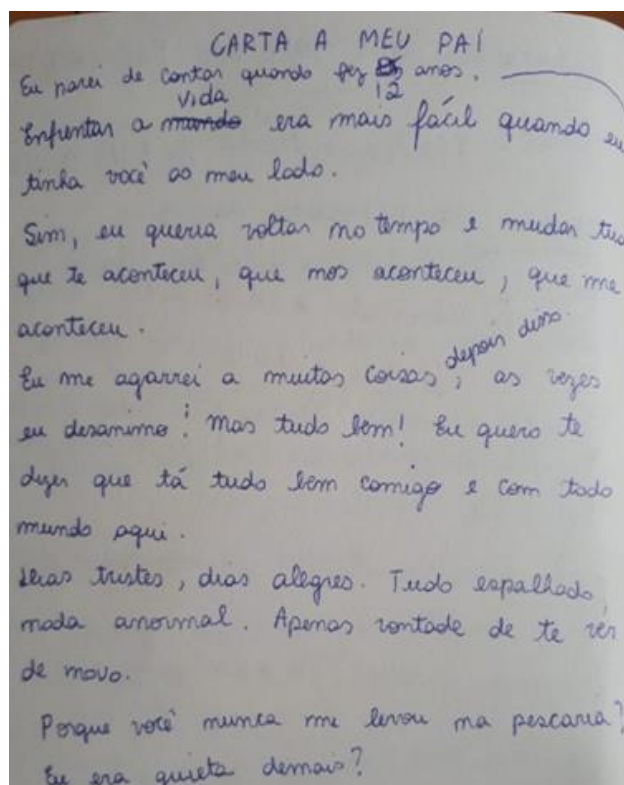 CARTA A MEU PAI
Eu parei de contar quando fez 12 anos.
Enfrentar a vida era mais fácil quando eu
tinha você ao meu lado.
Sim, eu queria voltar no tempo e mudar tu
que te aconteceu, que nos aconteceu, que me
aconteceu.
Eu me agarrei a muitas coisas, depois disso
as vezes
eu desanimo! Mas tudo bem! Eu quero te
dizer que tá tudo bem comigo e com todo
mundo aqui.
Dias tristes, dias alegres. Tudo espalhado,
nada anormal. Apenas vontade de te ver
de novo.
Porque você nunca me levou na pescaria?
Eu era quieta demais?